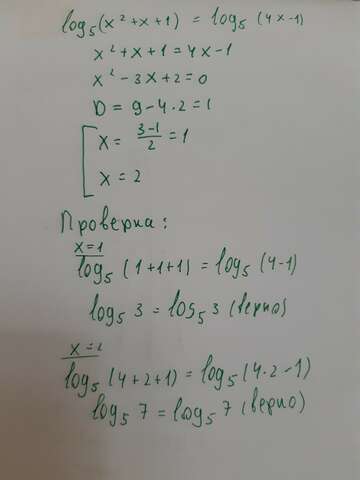 log₅(x²+x+1) = log₅(4x-1)
x²+x+1=4x-1
x²-3x+2=0
D=9-4·2=1
x=(3-1)/2=1
x=2
Проверка:
x=1
log₅(1+1+1)=log₅(4-1)
log₅3=log₅3(верно)
x=2
log₅(4+2+1)=log₅(4·2-1)
log₅7=log₅7(верно)